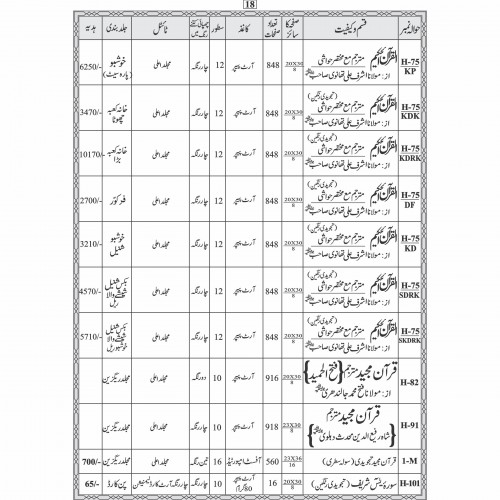 18
حوالہ نمبر قسم و کیفیت صفحہ کا سائز تعداد صفحات کاغذ سطور چھپائی کتنے رنگ میں ٹائٹل جلد بندی ہدیہ
H-75 KP القرآن الحکیم مترجم مع مختصر حواشی 20X30/8 848 آرٹ پیپر 12 چار رنگہ مجلد اعلیٰ خوشبو (پارہ سیٹ) 6250/-
از: مولانا اشرف علی تھانوی صاحب
H-75 KDK القرآن الحکیم (تجویدی رنگین) مترجم مع مختصر حواشی 20X30/8 848 آرٹ پیپر 12 چار رنگہ مجلد اعلیٰ خانہ کعبہ چھوٹا 3470/-
از: مولانا اشرف علی تھانوی صاحب
H-75 KDRK القرآن الحکیم (تجویدی رنگین) مترجم مع مختصر حواشی 20X30/8 848 آرٹ پیپر 12 چار رنگہ مجلد اعلیٰ خانہ کعبہ بڑا 10170/-
از: مولانا اشرف علی تھانوی صاحب
H-75 DF القرآن الحکیم (تجویدی رنگین) مترجم مع مختصر حواشی 20X30/8 848 آرٹ پیپر 12 چار رنگہ مجلد اعلیٰ فوکوز 2700/-
از: مولانا اشرف علی تھانوی صاحب
H-75 KD القرآن الحکیم (تجویدی رنگین) مترجم مع مختصر حواشی 20X30/8 848 آرٹ پیپر 12 چار رنگہ مجلد اعلیٰ خوشبو شنیل 3210/-
از: مولانا اشرف علی تھانوی صاحب
H-75 SDRK القرآن الحکیم (تجویدی رنگین) مترجم مع مختصر حواشی 20X30/8 848 آرٹ پیپر 12 چار رنگہ مجلد اعلیٰ بکس شنیل شیشے والا ریل 4570/-
از: مولانا اشرف علی تھانوی صاحب
H-75 SKDRK القرآن الحکیم (تجویدی رنگین) مترجم مع مختصر حواشی 20X30/8 848 آرٹ پیپر 12 چار رنگہ مجلد اعلیٰ بکس شنیل شیشے والا خوشبو ریل 5710/-
از: مولانا اشرف علی تھانوی صاحب
H-82 قرآن مجید مترجم {فتح الحمید} 20X30/8 916 آرٹ پیپر 10 دو رنگہ مجلد اعلیٰ مجلد ریگزین
از: مولانا فتح محمد جالندھری
H-91 قرآن مجید مترجم 23X30/8 918 آرٹ پیپر 10 چار رنگہ مجلد اعلیٰ مجلد ریگزین
{شاہ رفیع الدین محدث دہلوی}
1-M قرآن مجید تجویدی رنگین (سولہ سطری) 23X36/16 560 آفسٹ امپورٹڈ 16 تین رنگہ مجلد اعلیٰ مجلد ریگزین 700/-
H-101 سورۃ یٰسٓ شریف (تجویدی رنگین) 20X30/8 16 آرٹ پیپر 80 گرام 10 چار رنگہ آرٹ کارڈ لیمنیشن پن کارڈ 65/-